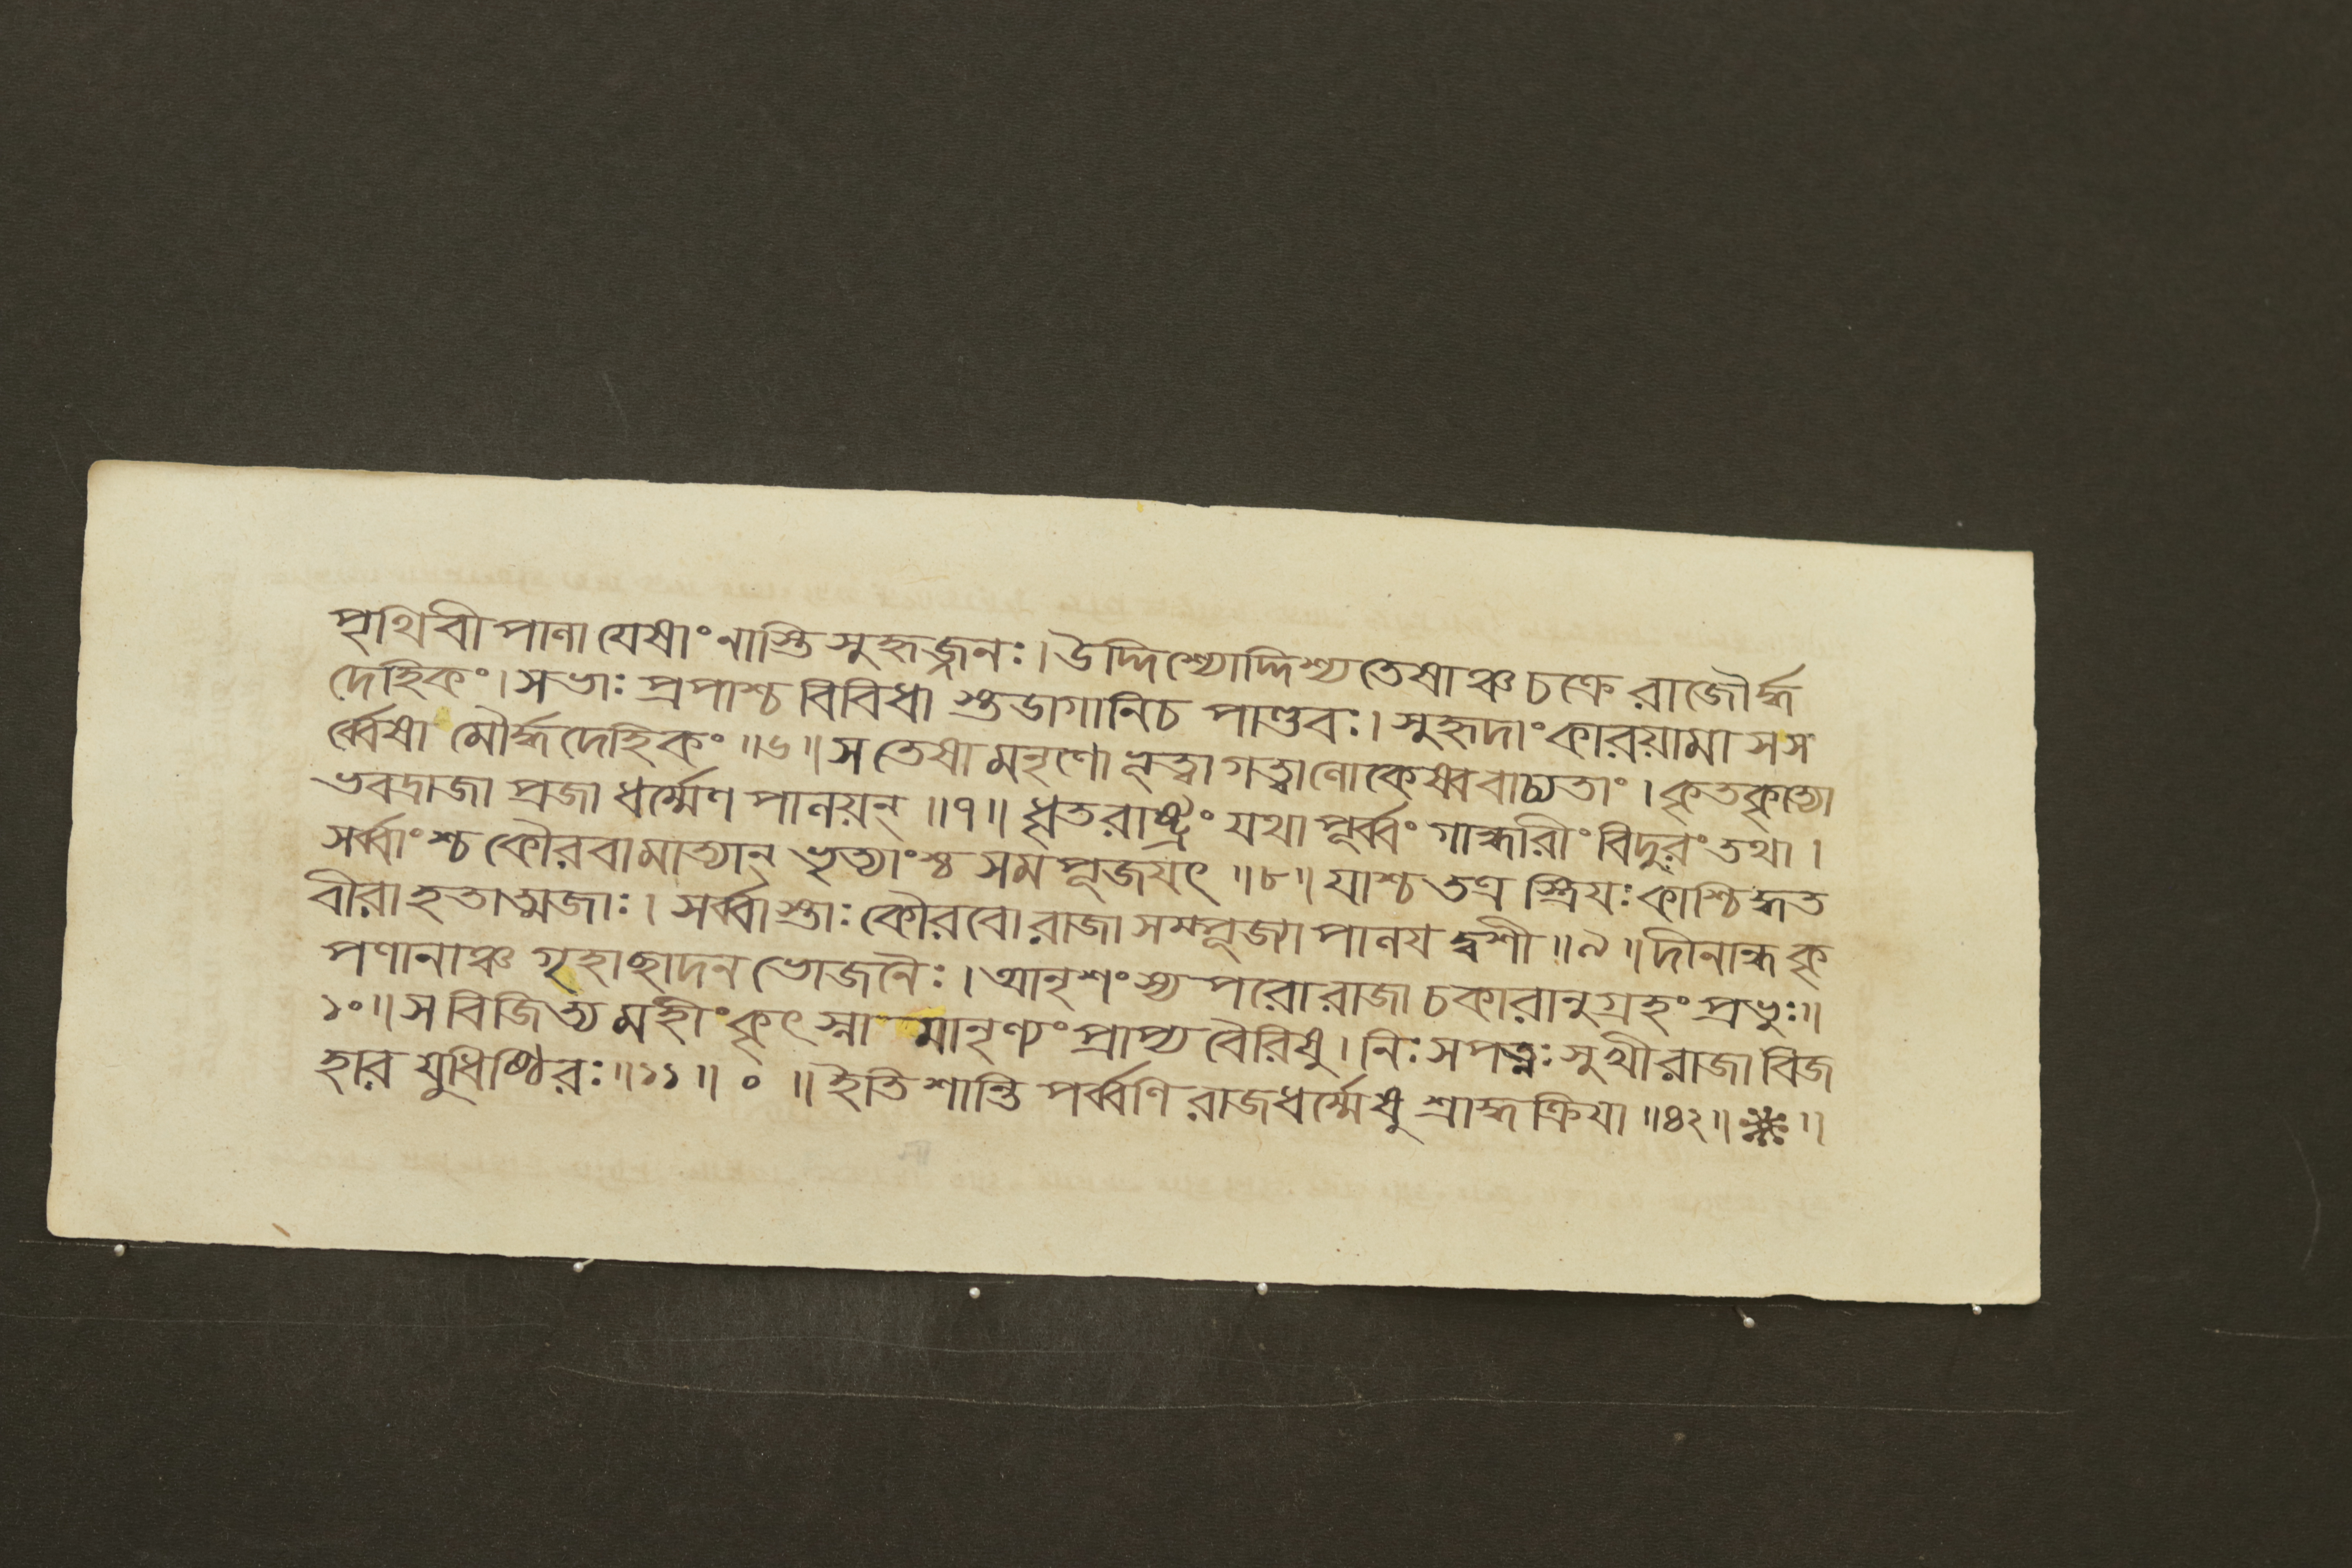 পৃথিবীপালা যেষাং নাস্তি সুহৃজ্জনঃ। উদ্দিশ্যোদ্দিশ্য তেষাঞ্চ চক্রে রাজৌর্দ্ধ
দেহিকং। সভাঃ প্রপাশ্চ বিবিধা স্তডাগানিচ পাণ্ডবঃ। সুহৃদাং কারয়ামাসস
র্ব্বেষা মৌর্দ্ধদেহিকং ॥৬॥ স তেষামনৃণো ভূত্বা গত্বালোকেষ্ববাচ্যতাং। কৃতকৃত্যো
ভবদ্রাজা প্রজা ধর্ম্মেণ পালয়ন্ ॥৭॥ ধৃতরাষ্ট্রং যথা পূর্ব্বং গান্ধারীং বিদুরং তথা।
সর্ব্বাংশ্চ কৌরবামাত্যান্ ভৃত্যাংশ্চ সমপূজয়ৎ ॥৮॥ যাশ্চ তত্র স্ত্রিয়ঃ কাশ্চিদ্ধত
বীরা হতাত্মজাঃ। সর্ব্বাস্তাঃ কৌরবো রাজা সম্পূজ্যা পালয়দ্ঘৃণী ॥৯॥ দীনান্ধকৃ
পণানাঞ্চ গৃহাছাদন ভোজনৈঃ। আনৃশংস্য পরো রাজা চকারানুগ্রহং প্রভুঃ॥
১০॥ স বিজিত্য মহীং কৃৎস্না মানৃণ্যং প্রাপ্য বৈরিষু। নিঃসপত্নঃ সুখী রাজা বিজ
হার যুধিষ্ঠিরঃ॥১১॥ ০ ॥ ইতি শান্তি পর্ব্বণি রাজধর্ম্মেষু শ্রাদ্ধক্রিয়া ॥৪২॥ ※ ॥